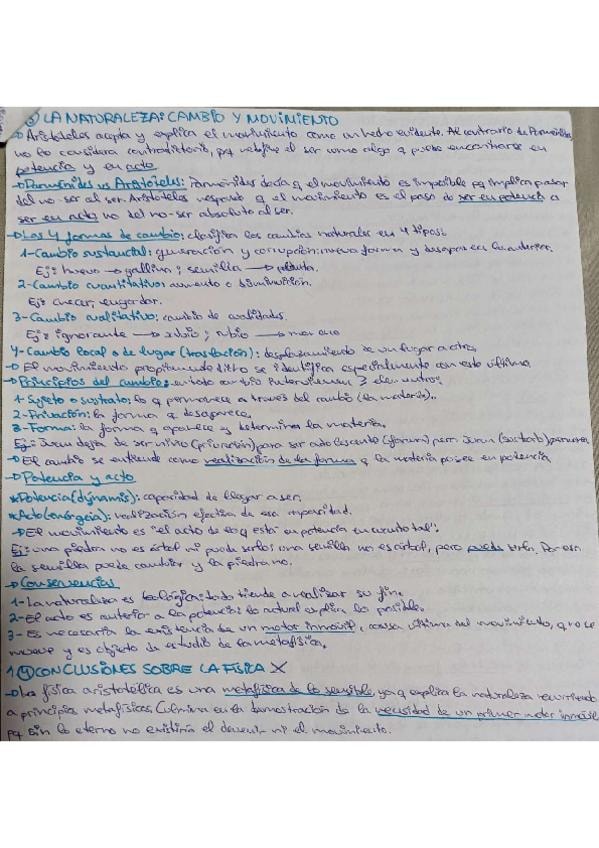 ③ LA NATURALEZA: CAMBIO Y MOVIMIENTO
→ Aristóteles acepta y explica el movimiento como un hecho evidente. Al contrario de Parménides
no lo considera contradictorio, pq redefine el ser como algo q puede encontrarse en
potencia y en acto.
→ Parménides vs Aristóteles: Parménides decía q el movimiento es imposible pq implica pasar
del no-ser al ser. Aristóteles responde q el movimiento es el paso de ser en potencia a
ser en acto, no del no-ser absoluto al ser.
→ Las 4 formas de cambio: clasifica los cambios naturales en 4 tipos:
1-Cambio sustancial: generación y corrupción: nueva forma y desaparece la anterior.
Ej: huevo → gallina; semilla →
2-Cambio cuantitativo: aumento o disminución.
Ej: crecer, engordar.
3-Cambio cualitativo: cambio de cualidades.
Ej: ignorante → sabio; rubio → moreno
4-Cambio local o de lugar (traslación): desplazamiento de un lugar a otro.
→ El movimiento propiamente dicho se identifica especialmente con este último.
→ Principios del cambio: en todo cambio intervienen 3 elementos:
1-Sujeto o sustrato: lo q permanece a través del cambio (la materia).
2-Privación: la forma q desaparece.
3-Forma: la forma q aparece y determina la materia.
Ej: Juan deja de ser niño (privación) para ser adolescente (forma) pero Juan (sustrato) permanece
→ El cambio se entiende como realización de la forma q la materia posee en potencia
→ Potencia y acto
*Potencia (dýnamis): capacidad de llegar a ser.
*Acto (enérgeia): realización efectiva de esa capacidad.
→ El movimiento es "el acto de lo q está en potencia en cuanto tal".
Ej: una piedra no es árbol ni puede serlo; una semilla no es árbol, pero puede serlo. Por eso
la semilla puede cambiar y la piedra no.
→ Consecuencias
1-La naturaleza es teleológica: todo tiende a realizar su fin.
2-El acto es anterior a la potencia: lo actual explica lo posible.
3-Es necesaria la existencia de un motor inmóvil, causa última del movimiento, q no se
mueve y es objeto de estudio de la metafísica.
1④ CONCLUSIONES SOBRE LA FÍSICA X
→ La física aristotélica es una metafísica de lo sensible, ya q explica la naturaleza recurriendo
a principios metafísicos. Culmina en la demostración de la necesidad de un primer motor inmóvil
pq sin lo eterno no existiría el devenir ni el movimiento.